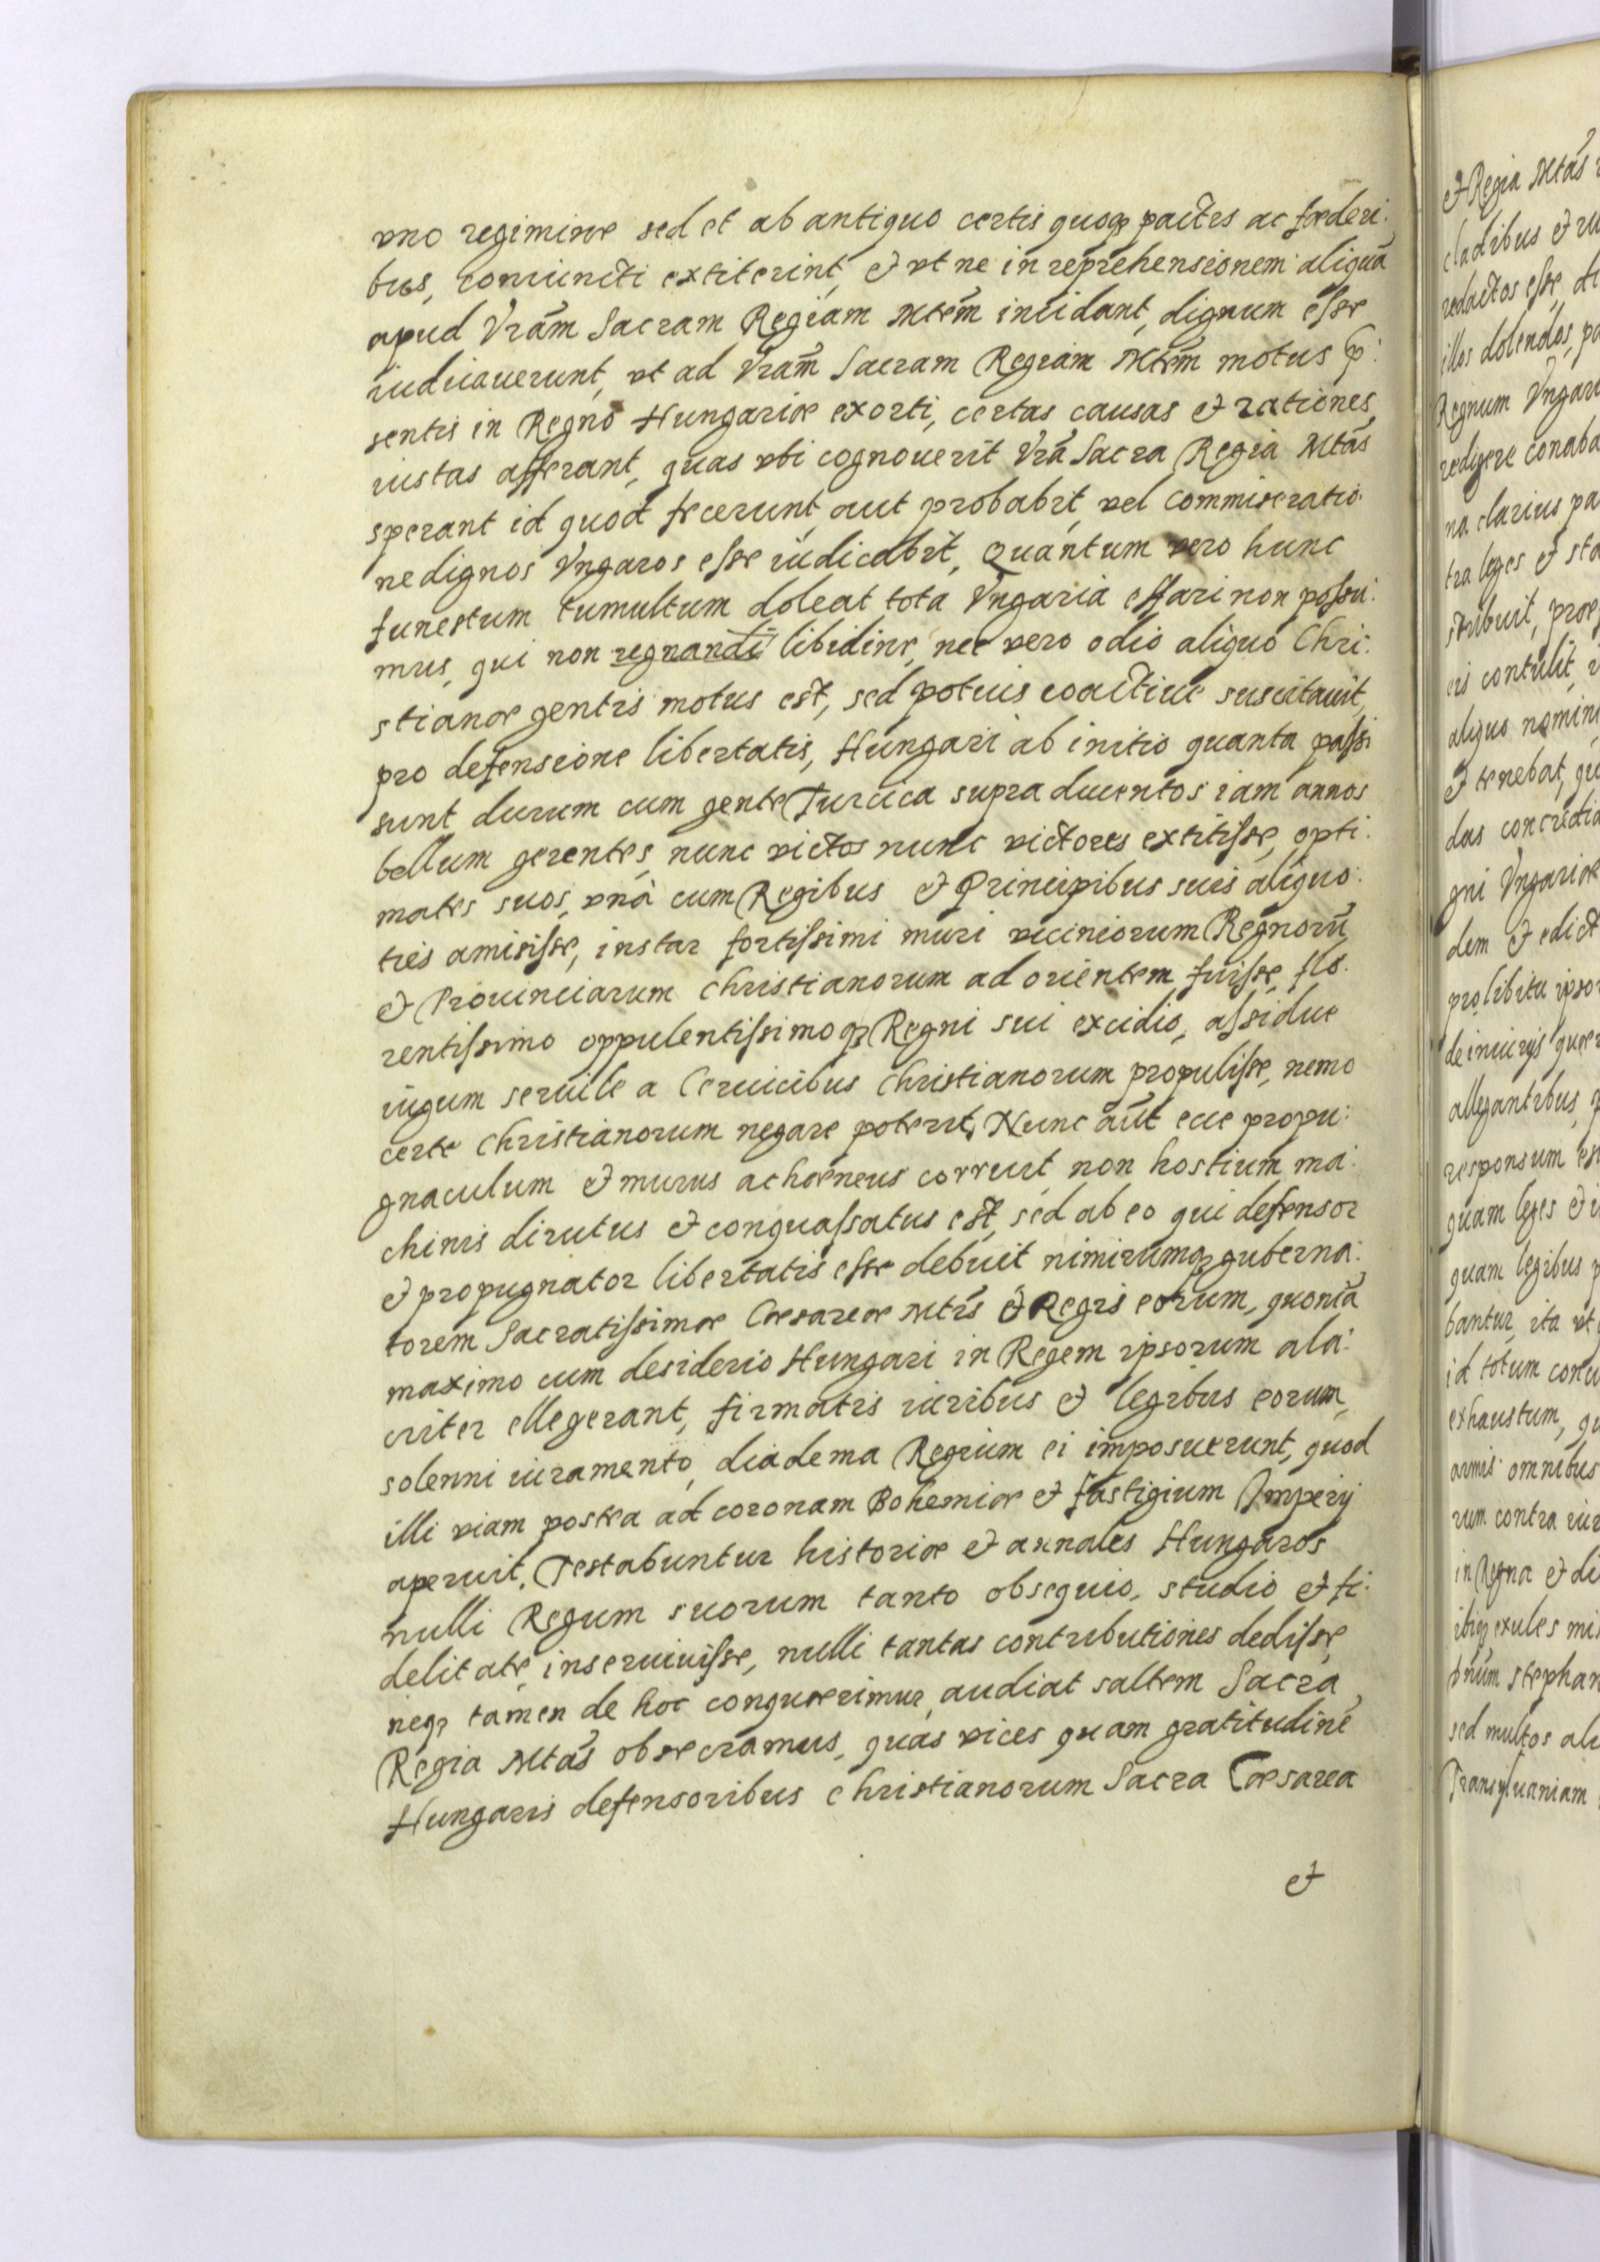 vno regimine sed et ab antiquo certis quoqꝫ pactis ac foederi:
bus, coniuncti extiterint, & vt ne in reprehensionem aliquã
apud Vrãm Sacram Regiam Mtem̃ incidant, dignum esse
iudicauerunt, vt ad Vrãm Sacram Regiam Mtem̃ motus p̃:
sentis in Regno Hungariæ exorti, certas causas & rationes
iustas afferant, quas vbi cognouerit Vrã Sacra Regia Mtãs
sperant id quod fecerunt, aut probabit, vel commiseratio:
ne dignos Vngaros esse iudicabit, Quantum vero hunc
funestum tumultum doleat tota Vngaria effari non possu:
mus, qui non regnandi libidine, nec vero odio aliquo Chri:
stianæ gentis motus est, sed potuis coactiue suscitauit,
pro defensione libertatis, Hungari ab initio quanta passi
sunt durum cum gente Turcica supra ducentos iam annos
bellum gerentes, nunc victos nunc victores extitisse, opti:
mates suos, vnà cum Regibus & Principibus suis aliquo:
ties amisisse, instar fortissimi muri viciniorum Regnorũ
& Prouinciarum Christianorum ad orientem fuisse, flo:
rentissimo oppulentissimoqꝫ Regni sui excidio, assidue
iugum seruile a Ceruicibus Christianorum propulisse, nemo
certe Christianorum negare poterit, Nunc aũt ecce propu:
gnaculum & murus achæneus corruit, non hostium ma:
chinis dirutus & conquassatus est, sed ab eo qui defensor
& propugnator libertatis esse debuit nimirumqꝫ guberna:
torem Sacratissimæ Cæsareæ Mtĩs & Regis eorum, quoniã
maximo cum desiderio Hungari in Regem ipsorum ala:
criter ellegerant, firmatis iuribus & legibus eorum,
solenni iuramento, diadema Regium ei imposuerunt, quod
illi viam postea ad coronam Bohemiæ & fastigium Imperij
aperuit, Testabuntur historiæ & annales Hungaros
nulli Regum suorum tanto obsequio, studio & fi:
delitate inseruiuisse, nulli tantas contributiones dedisse,
neqꝫ tamen de hoc conquærimur, audiat saltem Sacra
Regia Mtãs obsecramus, quas vices quam gratitudinẽ
Hungaris defensoribus Christianorum Sacra Cæsarea
&
& Regia Mtãs
cladibus & ru
redactos esse, du
illos dolendos, pa
Regnum Vngari
redigere conaba
na clarius pa
tra leges & sta
stribuit, præ
eis contulit,
aliquo nomin
& tenebat, qu
das concredi
gni Vngariæ
dem & edict
pro libitu ipso
de iniurijs quær
allegantibus,
responsum es
quam leges & i
quam legibus p
bantur, ita vt
id totum con
exhaustum, qu
armis omnibus
rum contra iur
in Regna & di
ibiqꝫ exules mi
dñum Stephan
sed multos ali
Transyluaniam